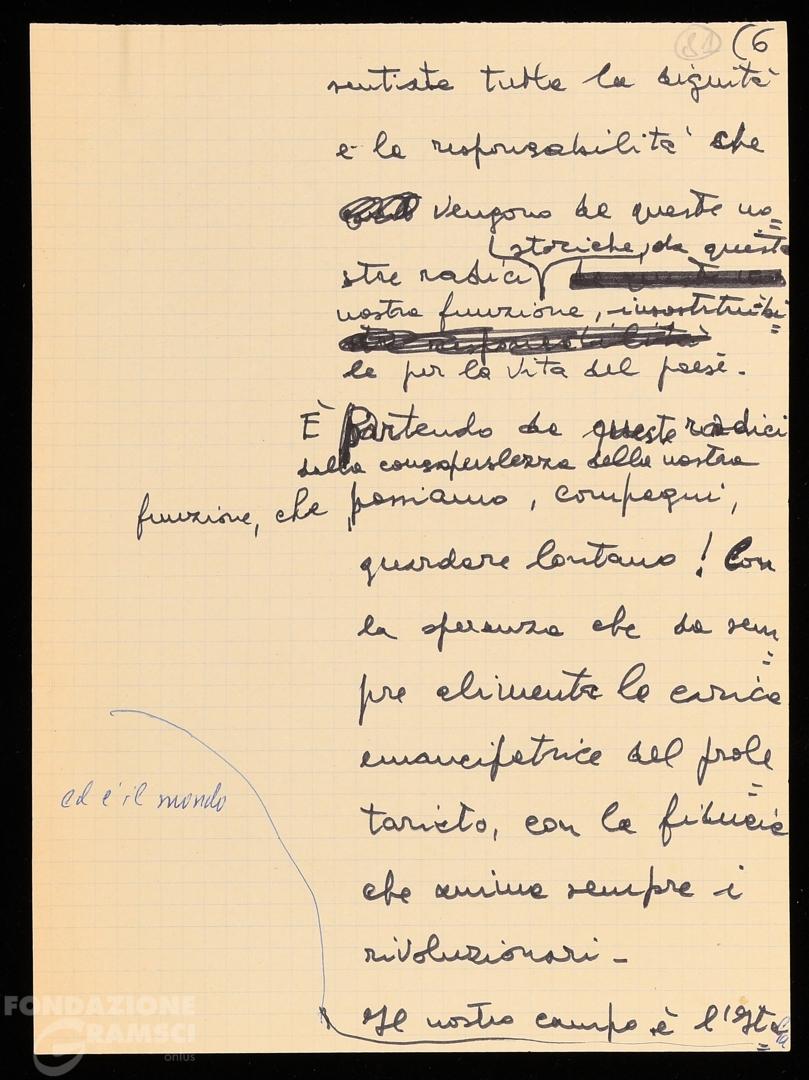 81 (6
sentiate tutta la dignità
e la responsabilità che
vengono da queste no=
storiche, da questa
stre radici
nostra funzione, insostitui=bi
le per la vita del paese.
È Partendo da queste radici
dalla consapevolezza della nostra
funzione, che possiamo, compagni,
guardare lontano! Con
la speranza che da sem=
pre alimenta la carica
emancipatrice del prole=
tariato, con la fiducia
che anima sempre i
rivoluzionari -
ed è il mondo
Il nostro campo è l'Ita=
FONDAZIONE
GRAMSCI
onlus